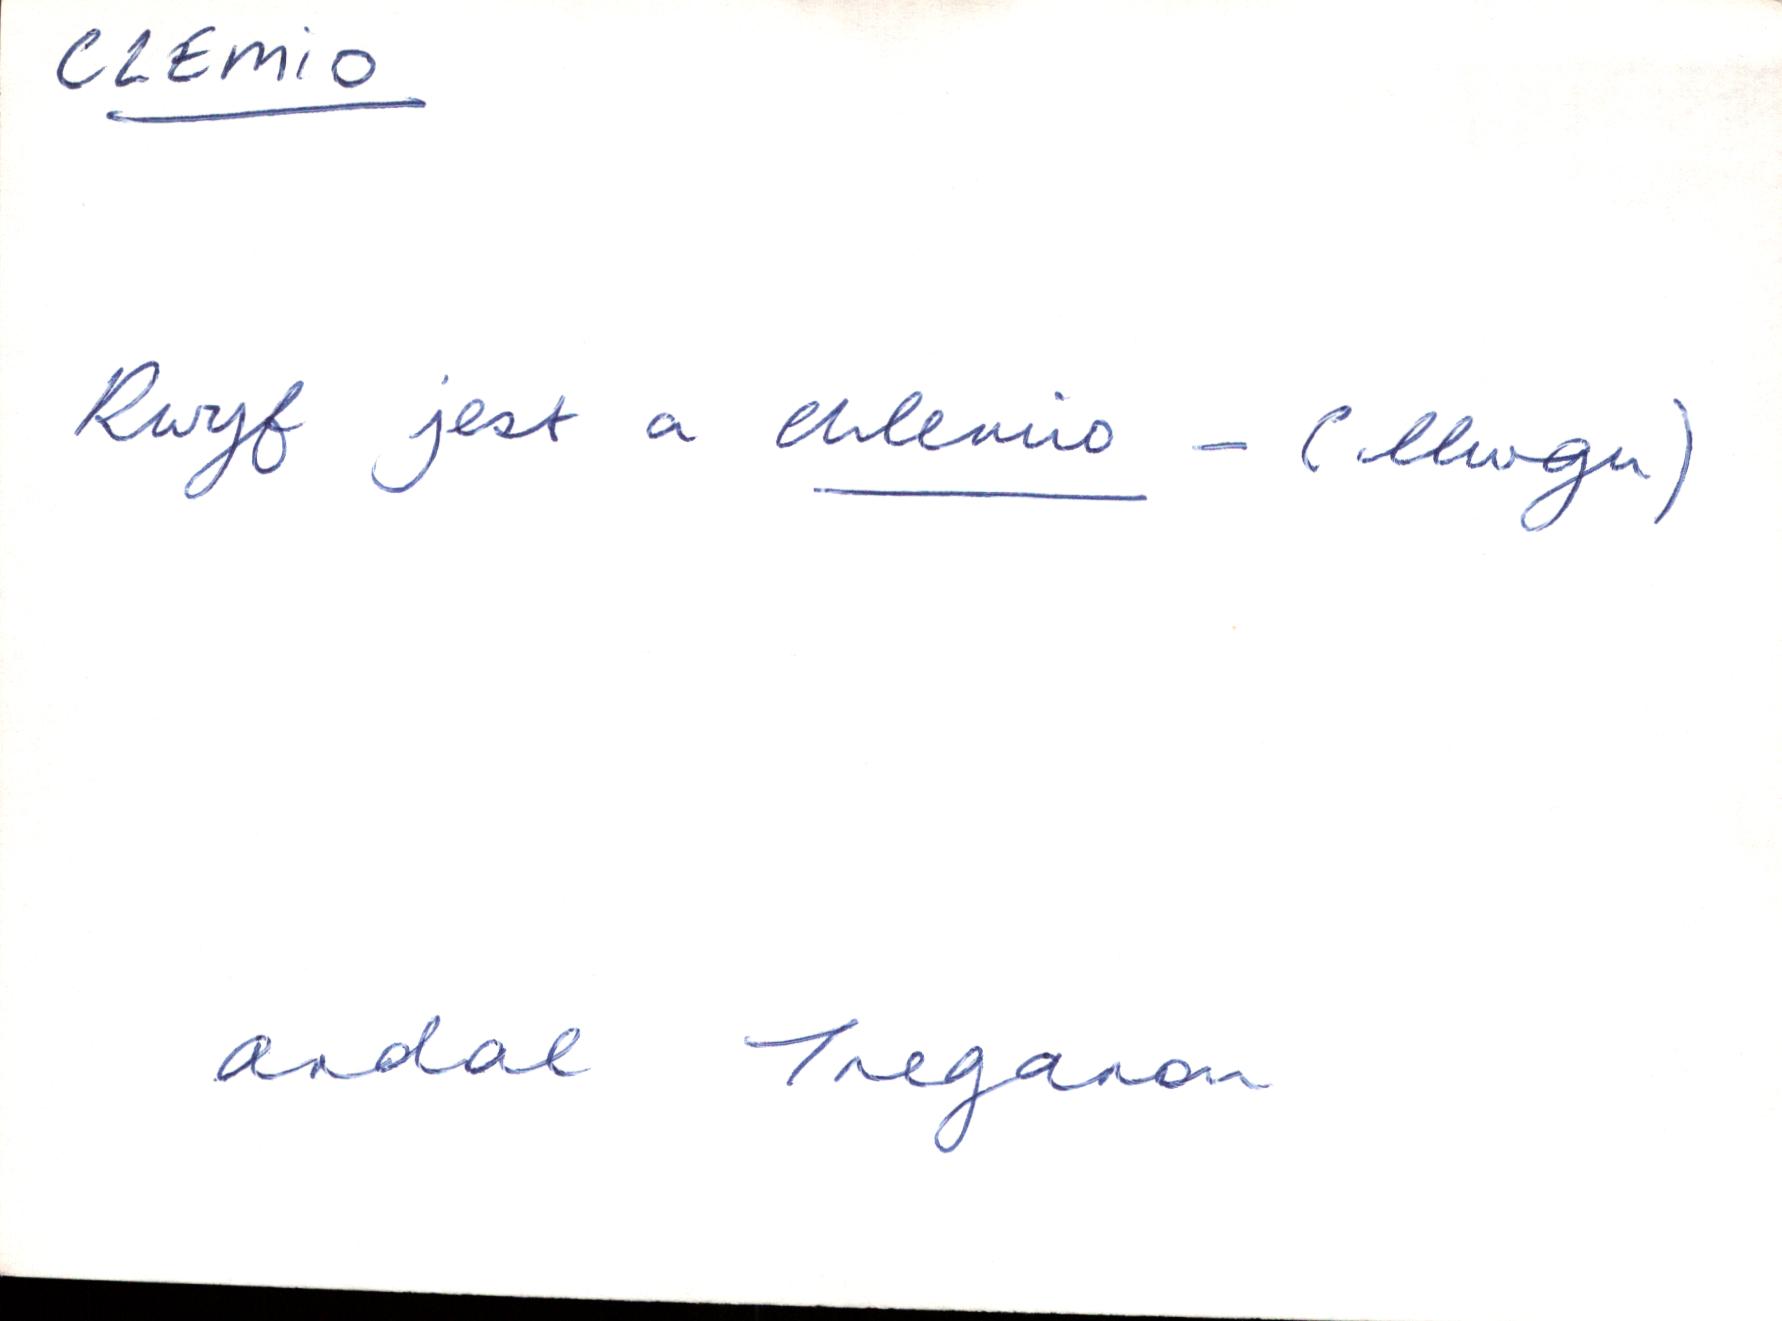 CLEMIO
Rwyf jest a chlemio - (llwgu)
ardal Tregaron